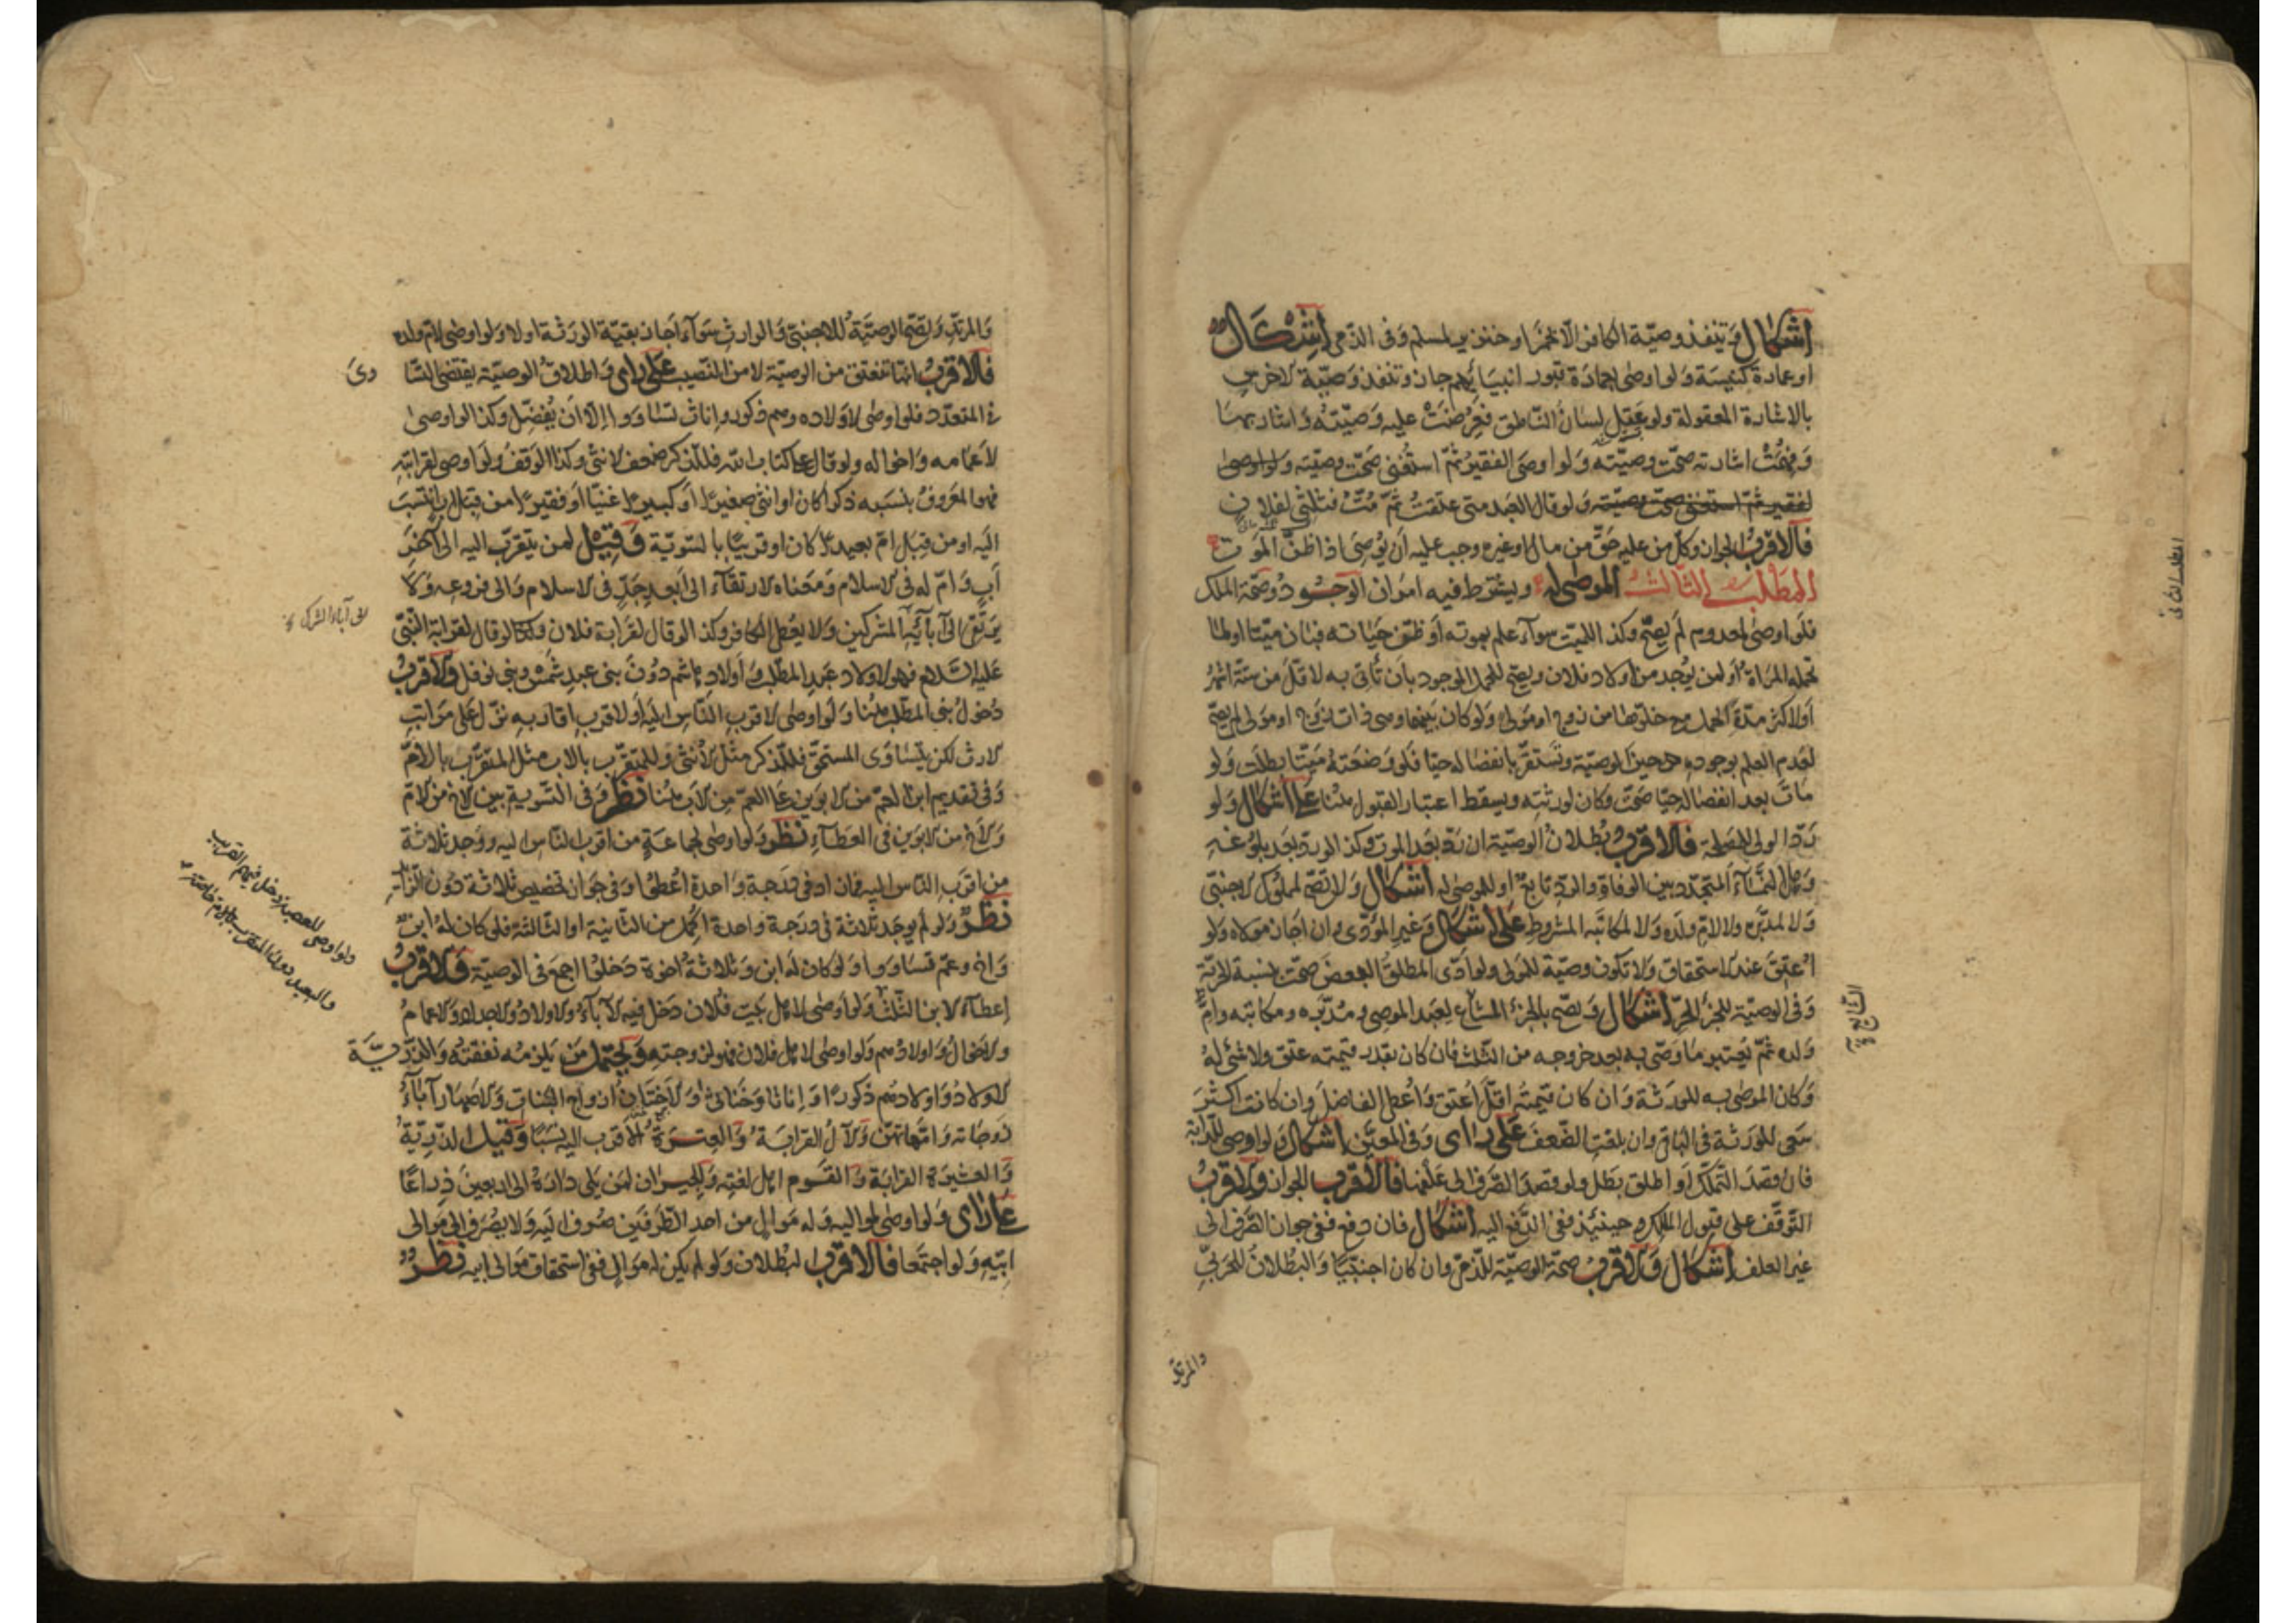 اشكال وتنفذ وصيّة الكافر الّا بخمر او خنزير لمسلم وفى الذّمى اشكال
او عمارة كنيسة ولو اوصى بعمارة قبور انبيائهم جاز وتنفذ وصيّة الاخرس
بالاشارة المعقولة ولو عقل لسان النّاطق فعرضت عليه وصيّته واشار بها
وفهمت اشارته صحّت وصيّته ولو اوصى الفقير ثمّ استغنى صحّت وصيّته ولو اوصى
لفقير ثمّ استغنى صحّت وصيّته ولو قال العبد متى عتقت ثمّ متّ فثلثى لفلان
فالاقرب الجواز وكلّ من عليه حقّ من مال او غيره وجب عليه ان يوصى اذا ظنّ الموت
المطلب الثالث الموصى له ويشترط فيه امران الوجود وصحّة الملك
فلو اوصى لمعدوم لم يصحّ وكذا لميّت سواء علم بموته او ظنّ حياته فبان ميّتا او لما
تحمله المراة او لمن يوجد من اولاد فلان ويصحّ للحمل الموجود بان تأتى به لاقلّ من ستّة اشهر
او لاكثر مدّة الحمل مع خلوّها من زوج او مولى ولو كان بينهما وهى ذات زوج او مولى لم يصحّ
لعدم العلم بوجوده حين الوصيّة وتستقرّ بانفصاله حيّا فلو وضعته ميّتا بطلت ولو
مات بعد انفصاله حيّا صحّت وكان لورثته ويسقط اعتبار القبول هنا على اشكال ولو
ردّ الولى لمصلحة فالاقرب بطلان الوصيّة ان ردّ بعد الموت وكذا لو ردّ بعد بلوغه
وهل النّماء المتجدّد بين الوفاة والردّ تابع او للموصى له اشكال ولا تصحّ لمملوك الاجنبى
ولا لمدبّره ولا لامّ ولده ولا لمكاتبه المشروط على اشكال وغير المؤدّى وان اجاز مولاه ولو
اعتق عند الاستحقاق ولا تكون وصيّة للمولى ولو ادّى المطلق البعض صحّت بنسبة الحريّة
وفى الوصيّة للجزء الحرّ اشكال وتصحّ بالجزء المشاع لعبد الموصى ومدبّره ومكاتبه وامّ
ولده ثمّ يعتبر ما وصّى به بعد خروجه من الثّلث فان كان بقدر قيمته عتق ولا شئ له
وكان الموصى به للورثة وان كان قيمته اقلّ اعتق واعطى الفاضل وان كانت اكثر
سعى للورثة فى الباقى وان بلغت الضّعف على راى وفى المعيّن اشكال ولو اوصى للدّابة
فان قصد التّملّك او اطلق بطل ولو قصد الصّرف الى علفها فالاقرب الجواز والاقرب
التّوقّف على قبول المالك وحينئذ ففى الدّفع اليه اشكال فان دفع ففى جواز الصّرف الى
غير العلف اشكال والاقرب صحّة الوصيّة للذّمى وان كان اجنبيّا والبطلان للحربى
والمرتدّ
والمرتدّ وتصحّ الوصيّة للاجنبى والوارث سواء اجاز بقيّة الورثة او لا ولو اوصى لامّ ولده
فالاقرب انّها تنعتق من الوصيّة لا من النّصيب على راى واطلاق الوصيّة يقتضى التّسا
وى
فى المتعدّد فلو اوصى لاولاده وهم ذكور واناث تساووا الّا ان يفضّل وكذا لو اوصى
لاعمامه واخواله ولو قال على كتاب اللّه فللذّكر ضعف الانثى وكذا الوقف ولو اوصى لقرابته
فهو المعروف بنسبه ذكرا كان او انثى صغيرا او كبيرا غنيّا او فقيرا من قبل اب انتسب
اليه او من قبل امّ بعيدا كان او قريبا بالسّويّة وقيل لمن يتقرّب اليه الى آخر
اب وامّ له فى الاسلام ومعناه الارتقاء الى ابعد جدّ فى الاسلام والى فروعه ولا
يرتقى الى آبائه المشركين ولا يعطى الكافر وكذا لو قال لقرابة فلان ولو قال لقرابة النّبىّ
عليه السّلام فهو لاولاد عبد المطّلب واولاد هاشم دون بنى عبد شمس وبنى نوفل والاقرب
دخول بنى المطّلب هنا ولو اوصى لاقرب النّاس اليه او لاقرب اقاربه نزّل على مراتب
الارث لكن يتساوى المستحقّ فللذّكر مثل الانثى وللمتقرّب بالاب مثل المتقرّب بالامّ
وفى تقديم ابن العمّ من الابوين على العمّ من الاب هنا نظر وفى التّسوية بين الاخ من الامّ
والاخ من الابوين فى العطاء نظر ولو اوصى لجماعة من اقرب النّاس اليه ووجد ثلاثة
من اقرب النّاس اليه فما زاد فى درجة واحدة اعطوا وفى جواز تخصيص ثلاثة دون الزّائد
نظر ولو لم يوجد ثلاثة فى درجة واحدة اكمل من الثّانية او الثّالثة فلو كان له ابن
واخ وعمّ تساووا ولو كان له ابن وثلاثة اخوة دخلوا اجمع فى الوصيّة والاقرب
اعطاء الابن الثّلث ولو اوصى لاهل بيت فلان دخل فيه الآباء والاولاد والاجداد والاعمام
والاخوال واولادهم ولو اوصى لاهل فلان فهو لزوجته ويحتمل من يلزمه نفقته والذّريّة
الاولاد واولادهم ذكورا او اناثا وخناثى والاختان ازواج البنات والاصهار آباء
زوجاته وامّهاتهنّ والآل القرابة والعترة الاقرب اليه نسبا وقيل الذّريّة
والعشيرة القرابة والقوم اهل لغته والجيران لمن يلى داره الى اربعين ذراعا
على راى ولو اوصى لمواليه وله موال من احد الطّرفين صرف اليه ولا يصرف الى موالى
ابيه ولو اجتمعا فالاقرب البطلان ولو لم يكن له موال ففى استحقاق موالى ابيه نظر
ولو اوصى للعصبة دخل فيهم القريب
والبعيد دون المتقرّب بالامّ خاصّة